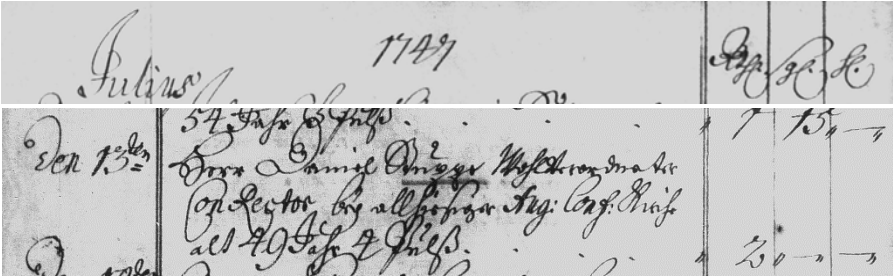 Julius 1747 Rthl. sgl. hl.
54 Jahr 3 Pulß. " 1 15 " —
den 13den Herr Daniel Stuppe Wohlverordneter
ConRector bey allhiesiger Aug: Conf: Kirche
alt 49 Jahr 4 Pulß. " 2 " — " —